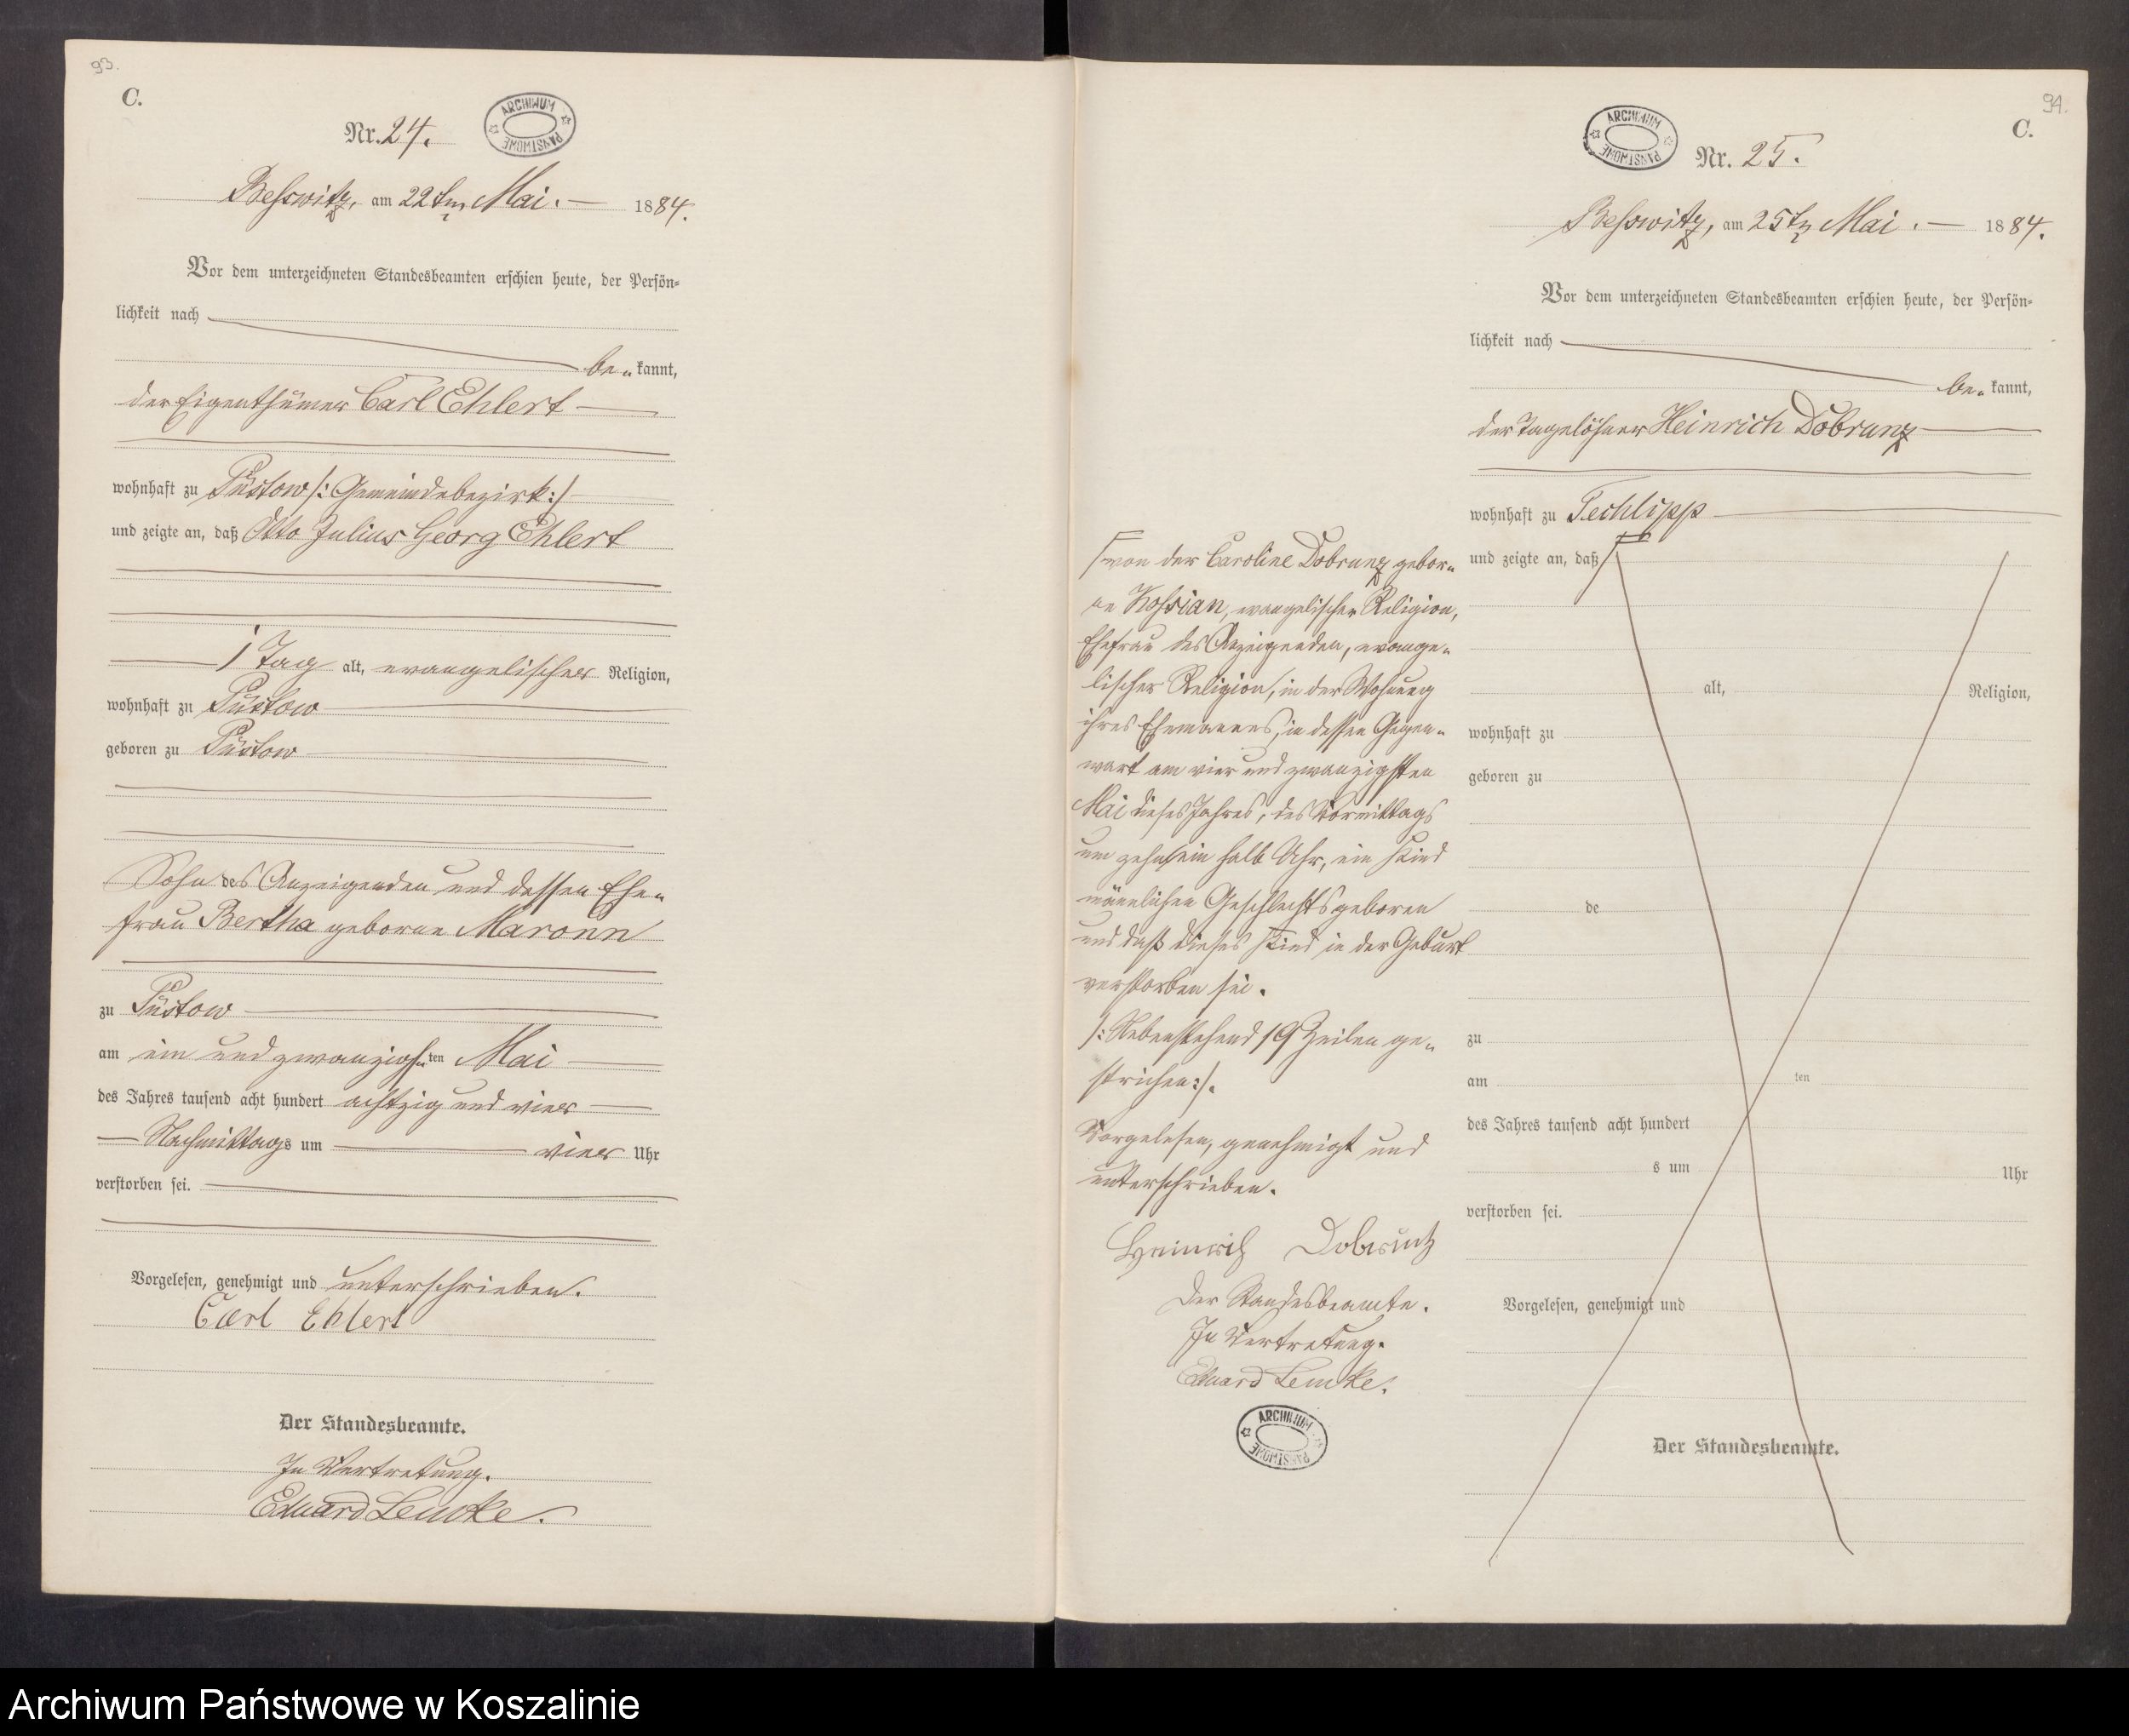 93.
C.
Nr. 24.
ARCHIWUM PAŃSTWOWE
Beßwitz, am 22ten Mai. 1884.
Vor dem unterzeichneten Standesbeamten erschien heute, der Persön-
lichkeit nach
be- kannt,
der Eigenthümer Carl Ehlert
wohnhaft zu Püstow /: Gemeindebezirk :/
und zeigte an, daß Otto Julius Georg Ehlert
1 Tag alt, evangelischer Religion,
wohnhaft zu Püstow
geboren zu Püstow
Sohn des Anzeigenden und dessen Ehe-
frau Bertha geborne Maronn
zu Püstow
am ein und zwanzigsten Mai
des Jahres tausend acht hundert achtzig und vier
Nachmittags um vier Uhr
verstorben sei.
Vorgelesen, genehmigt und unterschrieben.
Carl Ehlert
Der Standesbeamte.
In Vertretung.
Eduard Lemcke.
94.
C.
ARCHIWUM PAŃSTWOWE
Nr. 25.
Beßwitz, am 25ten Mai. 1884.
Vor dem unterzeichneten Standesbeamten erschien heute, der Persön-
lichkeit nach
be- kannt,
der Tagelöhner Heinrich Dobrunz
wohnhaft zu Techlipp
und zeigte an, daß
alt, Religion,
wohnhaft zu
geboren zu
de
zu
am ten
des Jahres tausend acht hundert
s um Uhr
verstorben sei.
Vorgelesen, genehmigt und
Der Standesbeamte.
von der Caroline Dobrunz gebor-
ne Koßian, evangelischer Religion,
Ehefrau des Anzeigenden, evange-
lischer Religion, in der Wohnung
ihres Ehemannes, in dessen Gegen-
wart am vier und zwanzigsten
Mai dieses Jahres, des Vormittags
um zehn ein halb Uhr, ein Kind
männlichen Geschlechts geboren
und daß dieses Kind in der Geburt
verstorben sei.
/: Nebenstehend 19 Zeilen ge-
strichen :/.
Vorgelesen, genehmigt und
unterschrieben.
Heinrich Dobrunz
Der Standesbeamte.
In Vertretung.
Eduard Lemcke.
ARCHIWUM PAŃSTWOWE
Archiwum Państwowe w Koszalinie